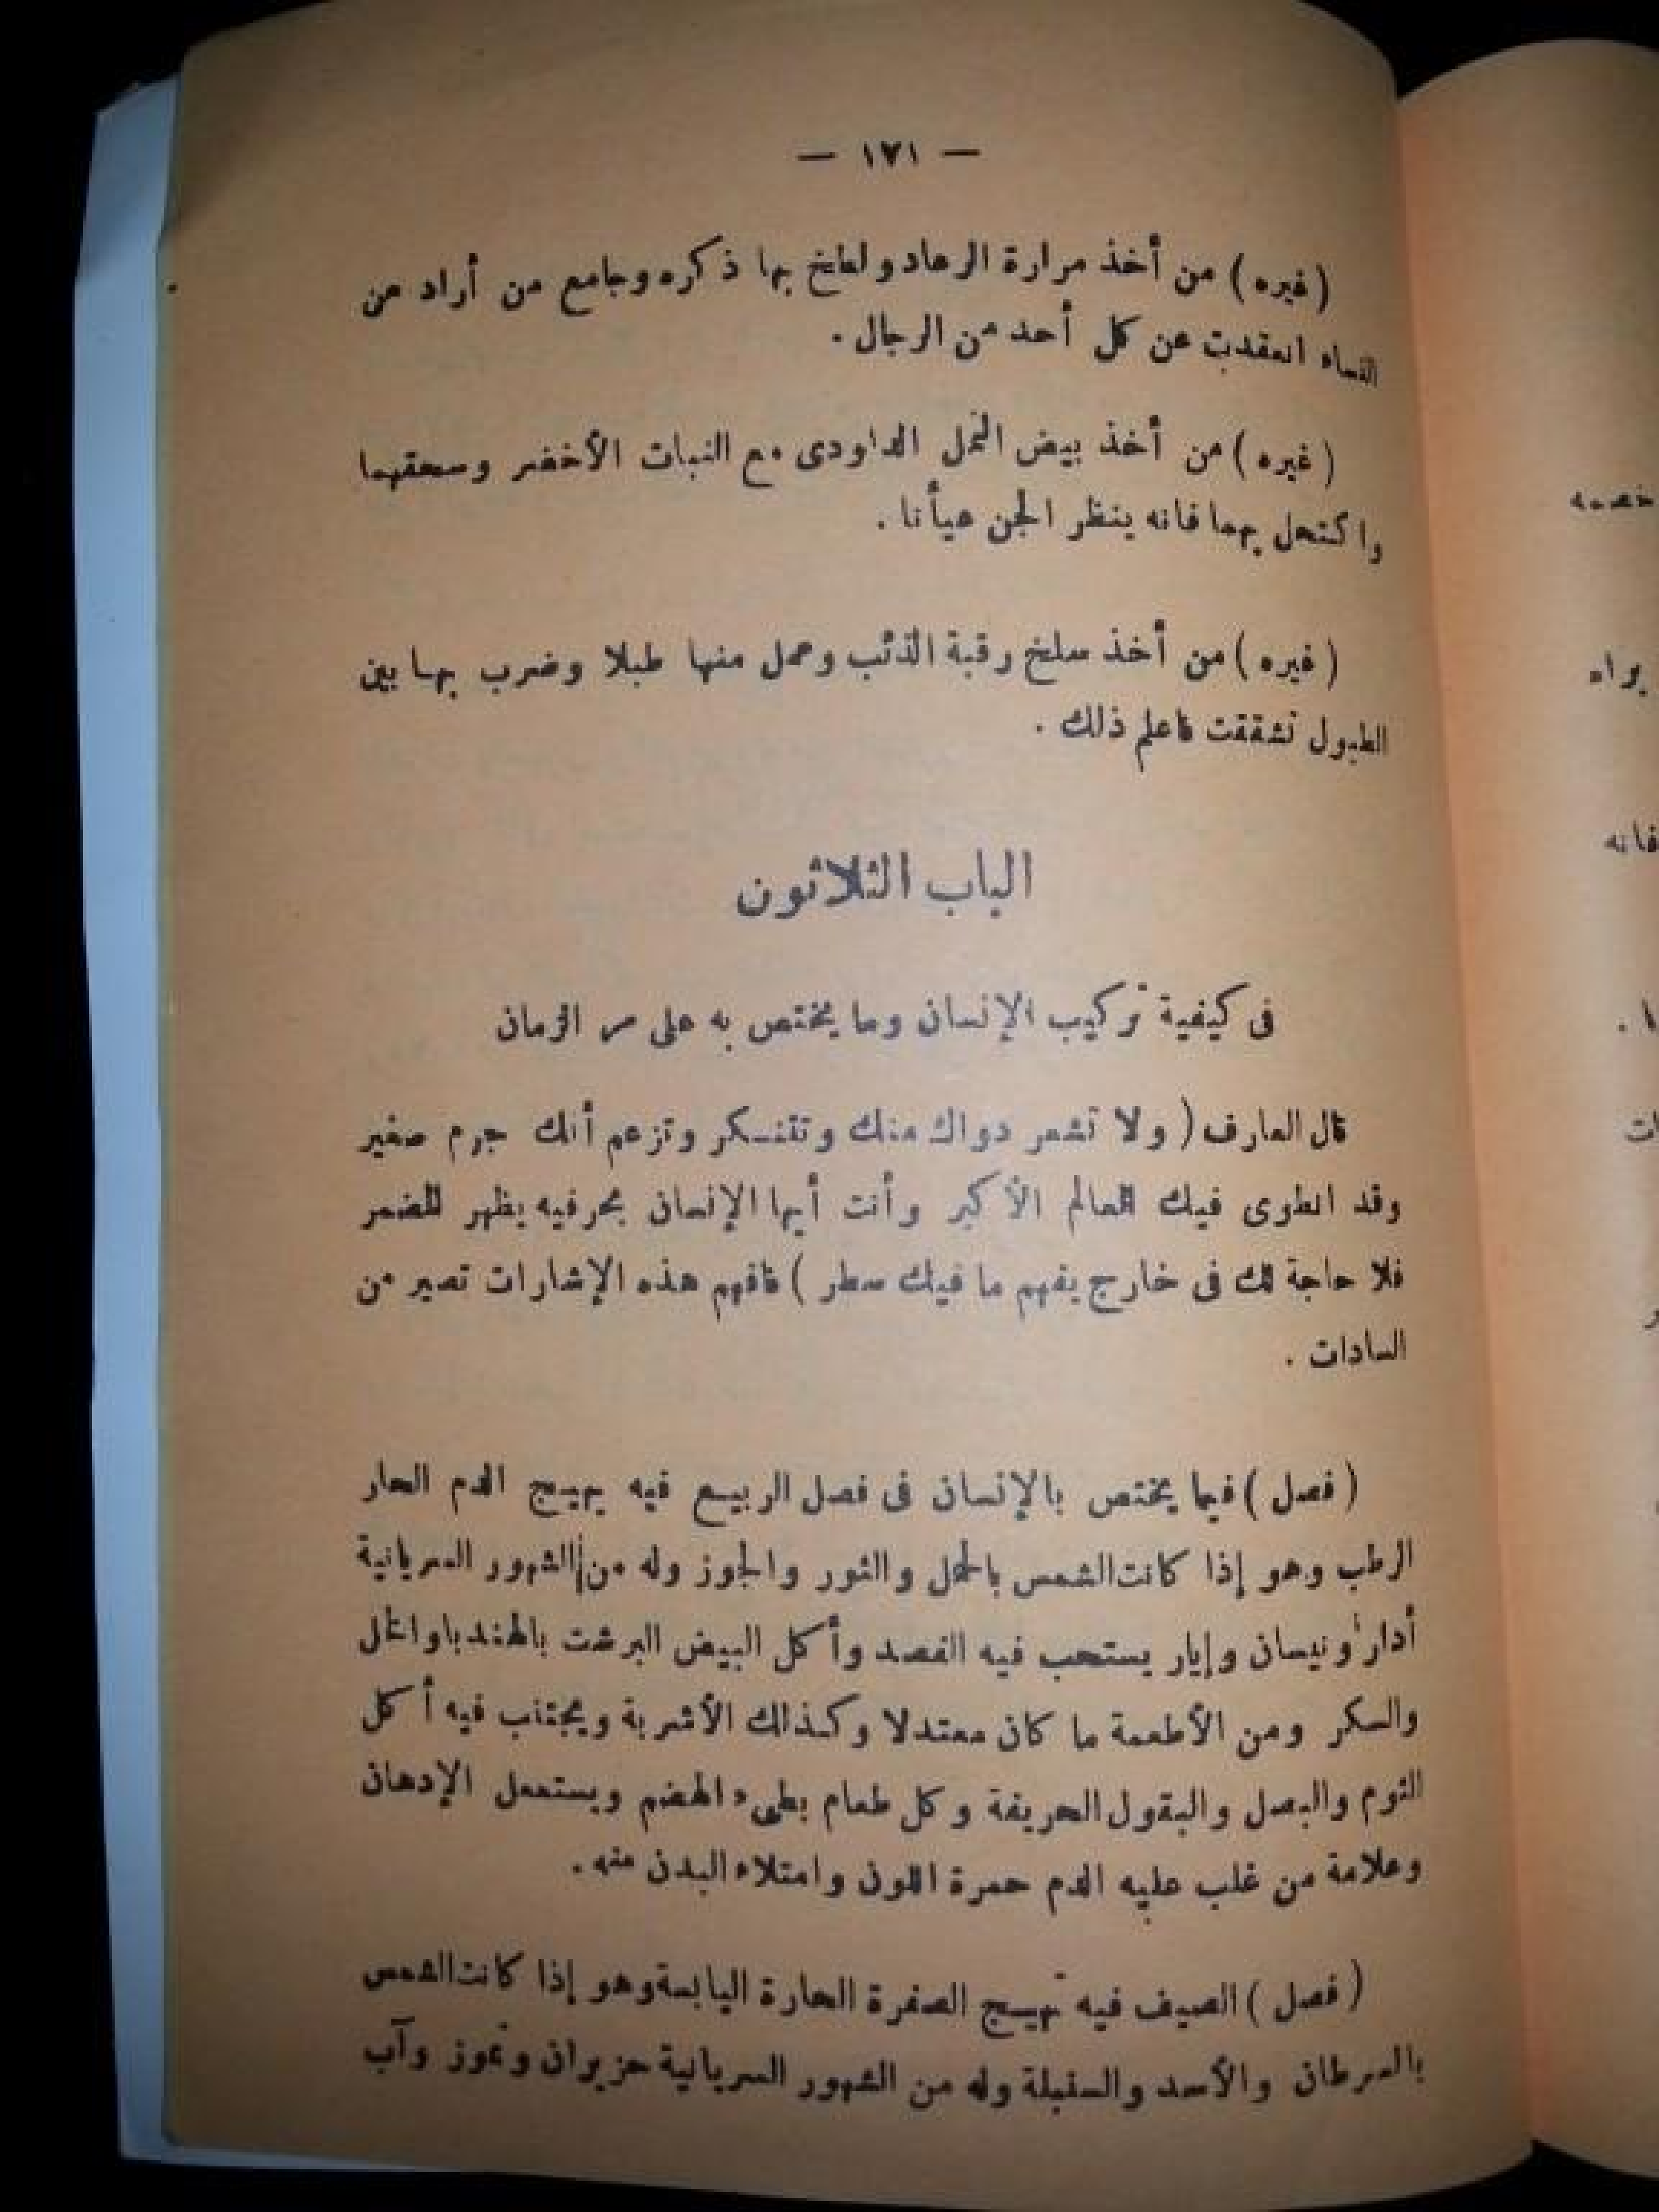 — ١٧١ —
( غيره ) من أخذ مرارة الرعاد ولطخ بها ذكره وجامع من أراد من
النساء انعقدت عن كل أحد من الرجال .
( غيره ) من أخذ بيض النمل الداودى مع النبات الأخضر وسحقهما
واكتحل بهما فانه ينظر الجن عيأنا .
( غيره ) من أخذ سلخ رقبة الذئب وعمل منها طبلا وضرب بها بين
الطبول تشققت فاعلم ذلك .
الباب الثلاثون
فى كيفية تركيب الإنسان وما يختص به على مر الزمان
قال العارف ( ولا تشعر دواك منك وتتنسكر وتزعم أنك جرم صغير
وقد انطوى فيك العالم الأكبر وأنت أيها الإنسان بحر فيه يظهر المضمر
فلا حاجة لك فى خارج يفهم ما فيك سطر ) فافهم هذه الإشارات تصير من
السادات .
( فصل ) فيما يختص بالإنسان فى فصل الربيع فيه يهيج الدم الحار
الرطب وهو إذا كانت الشمس بالحمل والثور والجوز وله من الشهور السريانية
أدار ونيسان وإيار يستحب فيه الفصد وأكل البيض البرشت بالهندبا والخل
والسكر ومن الأطعمة ما كان معتدلا وكذلك الأشربة ويجتنب فيه أكل
الثوم والبصل والبقول الحريفة وكل طعام بطىء الهضم ويستعمل الإدهان
وعلامة من غلب عليه الدم حمرة اللون وامتلاء البدن منه .
( فصل ) الصيف فيه تهيج الصفرة الحارة اليابسة وهو إذا كانت الشمس
بالسرطان والأسد والسنبلة وله من الشهور السريانية حزيران وتموز وآب
خصمه
يراه
فانه
ا .
ات
ر